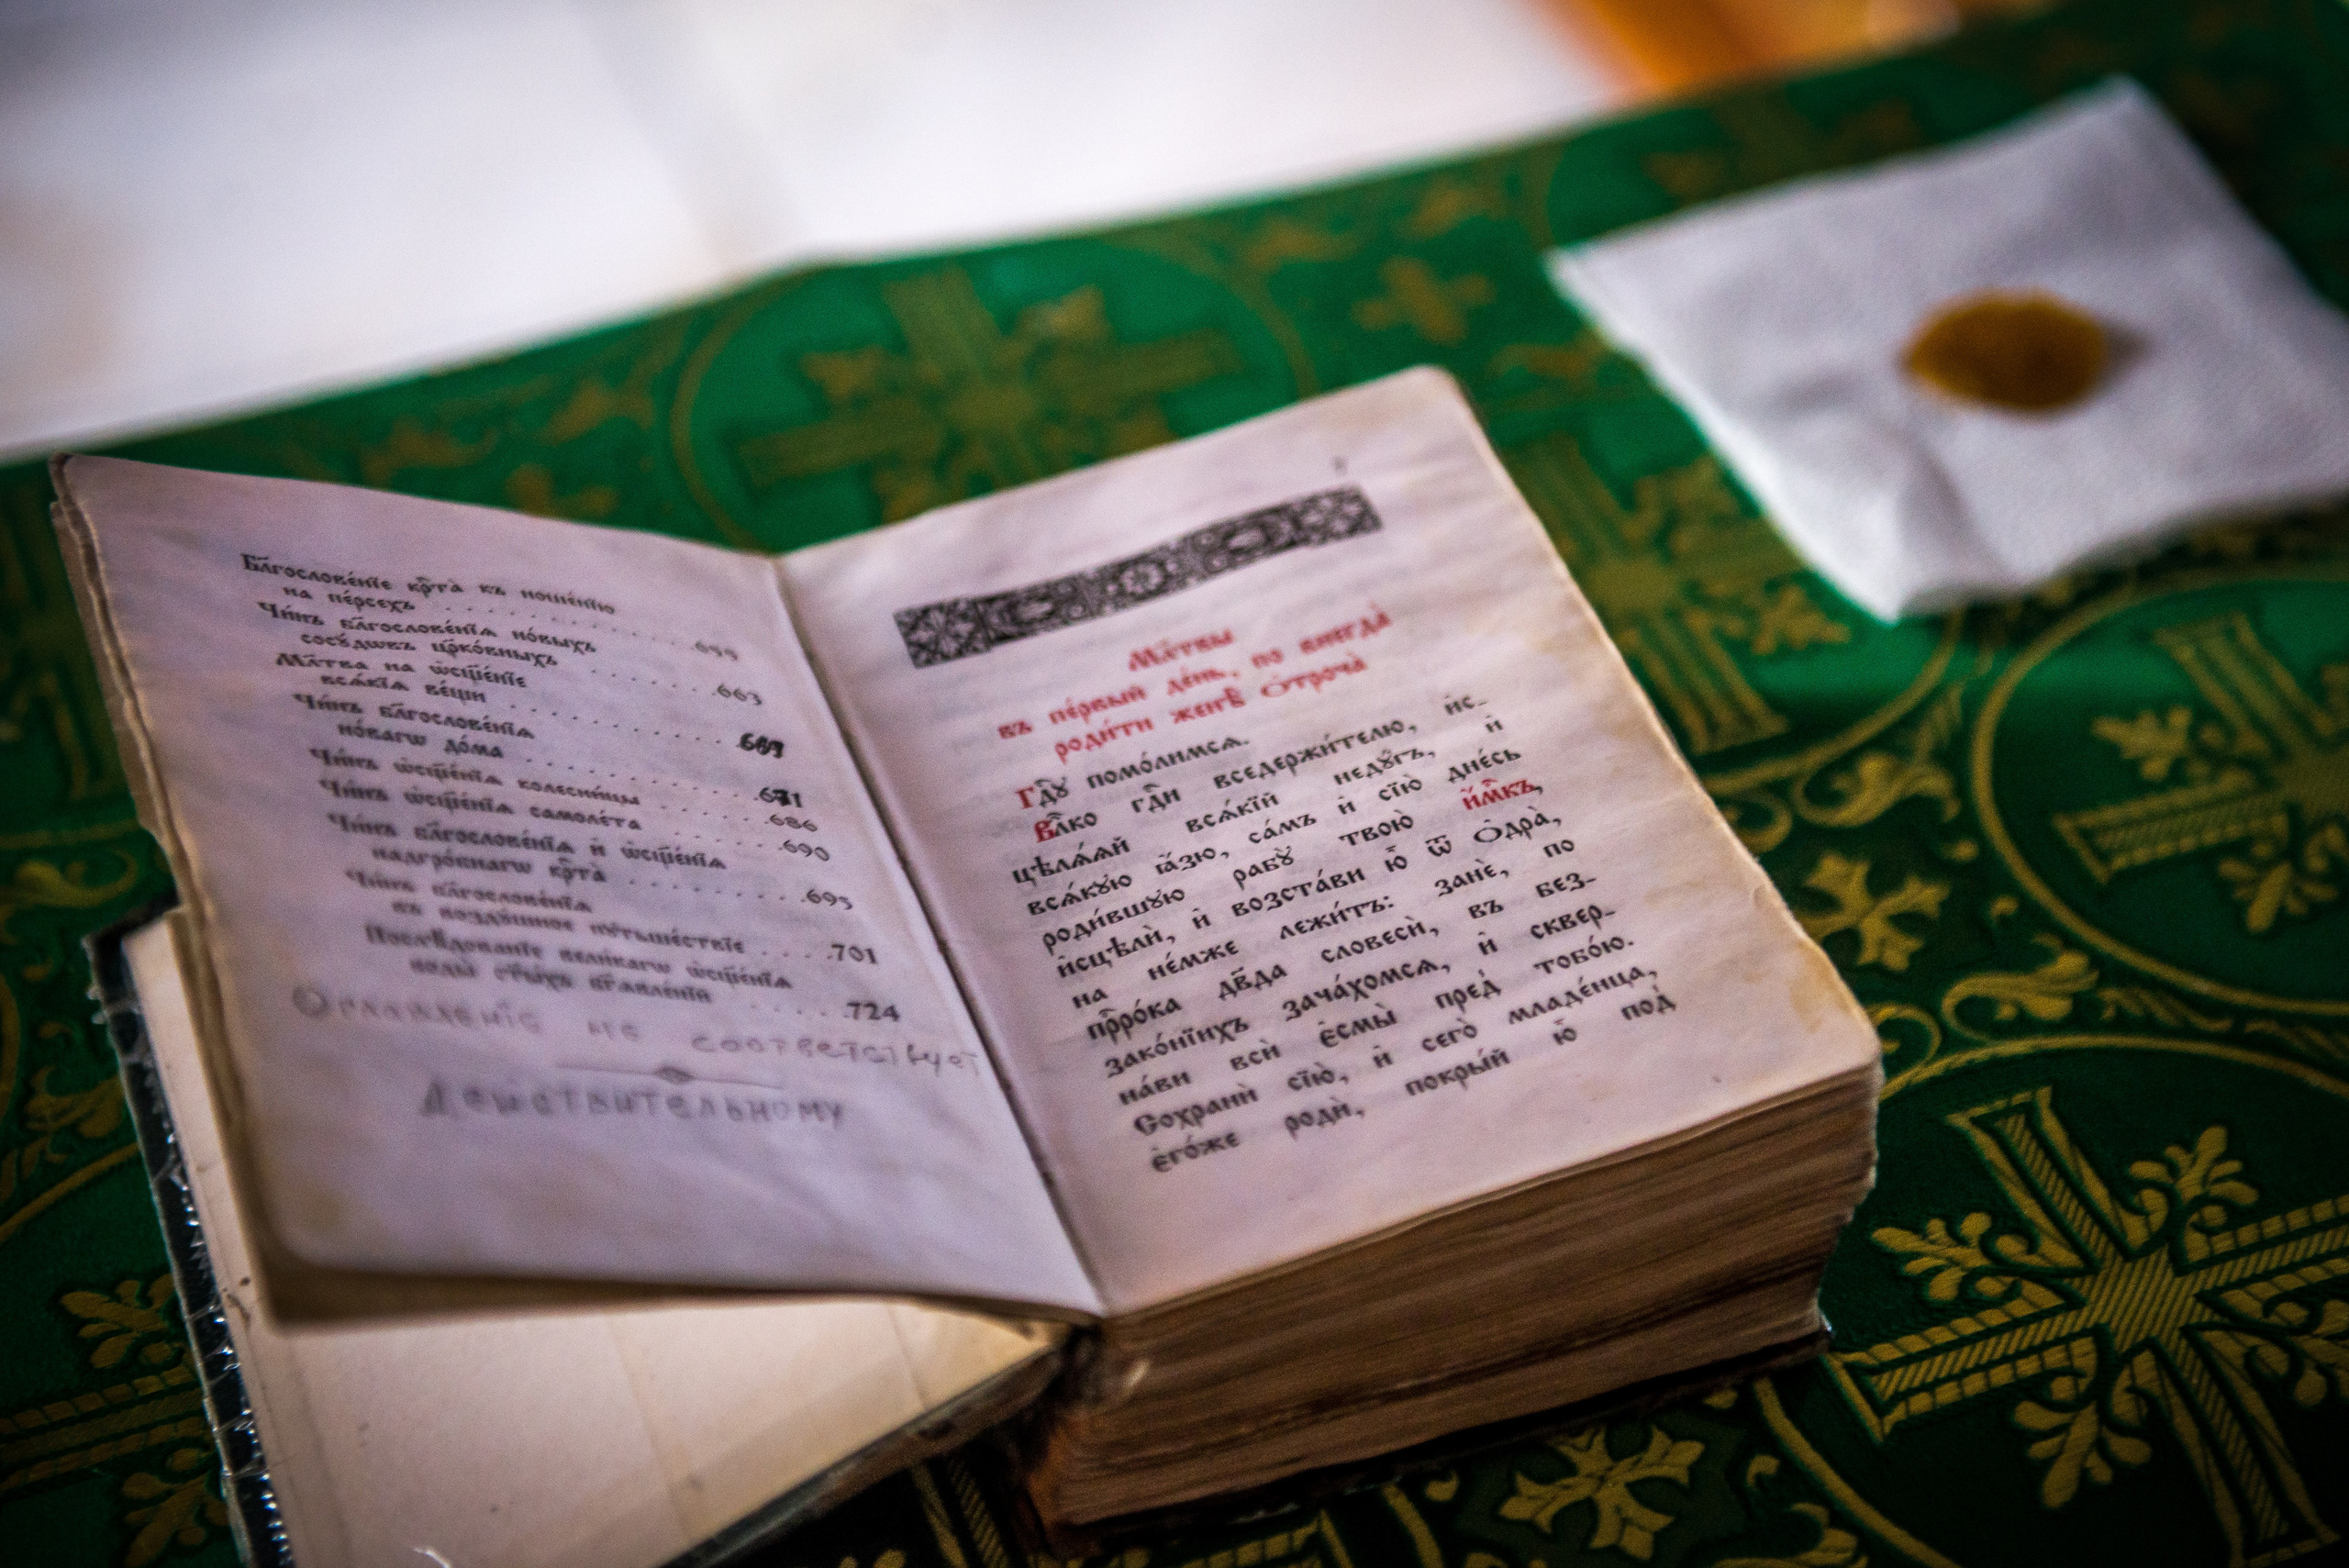 Бл҃гослове́нїе крⷭ҇та̀ къ ноше́нїю
на пе́рсехъ . . . . . . . . . . 659
Чи́нъ бл҃гослове́нїѧ но́выхъ
сосꙋ́дѡвъ цр҃ко́вныхъ . . . . . . . 663
Мл҃тва на ѡ҆сщ҃е́нїе
всѧ́кїѧ ве́щи . . . . . . . . . .
Чи́нъ бл҃гослове́нїѧ
но́вагѡ до́ма . . . . . . . . . . 671
Чи́нъ ѡ҆сщ҃е́нїѧ колесни́цы . . . . . 686
Чи́нъ ѡ҆сщ҃е́нїѧ самоле́та . . . . . 690
Чи́нъ бл҃гослове́нїѧ и҆ ѡ҆сщ҃е́нїѧ
надгро́бнагѡ крⷭ҇та̀ . . . . . . . . 695
Чи́нъ бл҃гослове́нїѧ
въ возд́ꙋшное пꙋтьше́ствїе . . . . 701
Послѣ́дованїе вели́кагѡ ѡ҆сщ҃е́нїѧ
воды̀ ст҃ы́хъ бг҃оѧвле́нїй . . . . . 724
Оглавление не соответствует
действительному
Мл҃твы
въ пе́рвый де́нь, по внегда̀
роди́ти женѣ̀ ѻ҆троча̀
Гдⷭ҇ꙋ помо́лимсѧ.
Влⷣко гдⷭ҇и вседержи́телю, и҆с-
цѣлѧ́ѧй всѧ́кїй недꙋ́гъ, и҆
всѧ́кꙋю ꙗ҆́зю, са́мъ и҆ сїю̀ дне́сь
роди́вшꙋю рабꙋ̀ твою̀ и҆́мⷬ҇къ,
и҆сцѣлѝ, и҆ возста́ви ю҆̀ ѿ ѻ҆дра̀,
на не́мже лежи́тъ: занѐ, по
прⷪ҇ро́ка дв҃да словесѝ, въ без-
зако́нїихъ зача́хомсѧ, и҆ сквер-
на́ви всѝ є҆смы̀ пред̾ тобо́ю.
Сохранѝ сїю̀, и҆ сего̀ младе́нца,
є҆го́же родѝ, покры́й ю҆̀ под̾